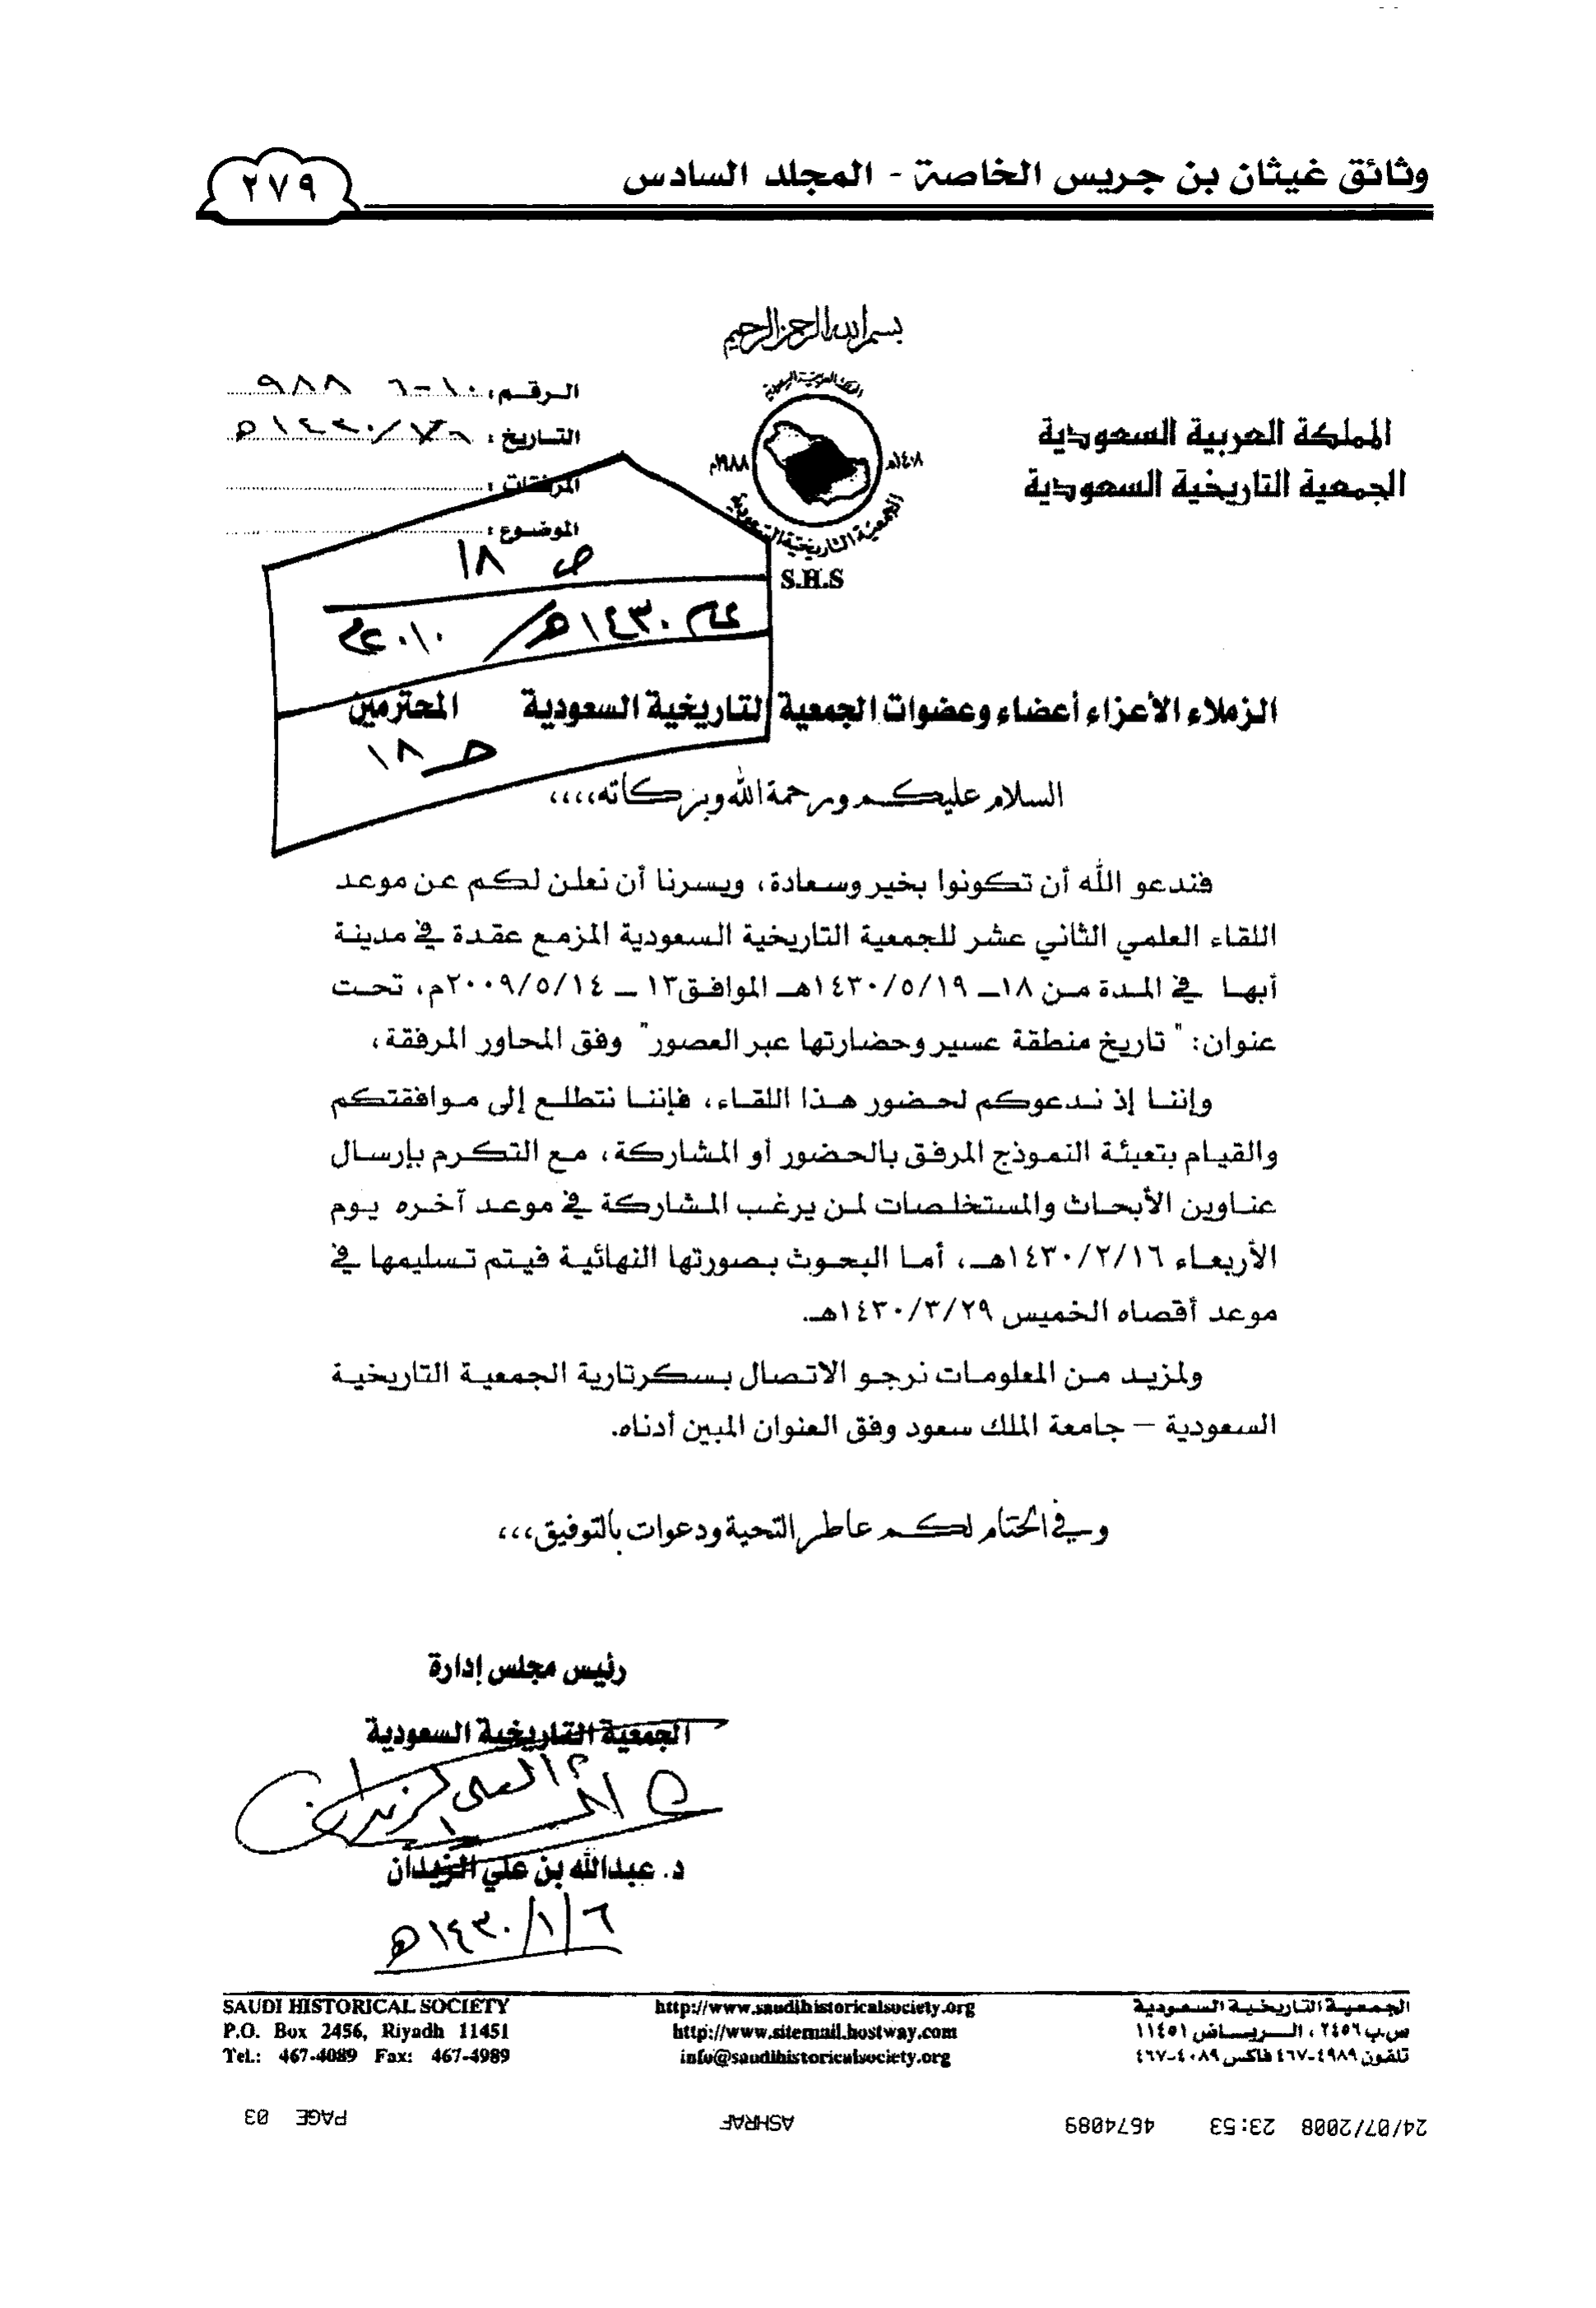 وثائق غيثان بن جريس الخاصة - المجلد السادس
٢٧٩
بسم الله الرحمن الرحيم
المملكة العربية السعودية
الجمعية التاريخية السعودية
المملكة العربية السعودية
١٤٠٨هـ
١٩٨٨م
الجمعية التاريخية السعودية
S.H.S
الرقم:
التاريخ:
المرفقات:
الموضوع:
ص ١٨
١٤٣٠هـ / ٢٠١٠م
ح ١٨
الزملاء الأعزاء أعضاء وعضوات الجمعية التاريخية السعودية المحترمين
السلام عليكم ورحمة الله وبركاته،،،،
فندعو الله أن تكونوا بخير وسعادة، ويسرنا أن نعلن لكم عن موعد
اللقاء العلمي الثاني عشر للجمعية التاريخية السعودية المزمع عقدة في مدينة
أبها في المدة من ١٨ــ ١٤٣٠/٥/١٩هـ الموافق١٣ – ٢٠٠٩/٥/١٤م، تحت
عنوان: "تاريخ منطقة عسير وحضارتها عبر العصور" وفق المحاور المرفقة،
وإننا إذ ندعوكم لحضور هذا اللقاء، فإننا نتطلع إلى موافقتكم
والقيام بتعبئة النموذج المرفق بالحضور أو المشاركة، مع التكرم بإرسال
عناوين الأبحاث والمستخلصات لمن يرغب المشاركة في موعد آخره يوم
الأربعاء ١٤٣٠/٢/١٦هـ، أما البحوث بصورتها النهائية فيتم تسليمها في
موعد أقصاه الخميس ١٤٣٠/٣/٢٩هـ.
ولمزيد من المعلومات نرجو الاتصال بسكرتارية الجمعية التاريخية
السعودية – جامعة الملك سعود وفق العنوان المبين أدناه.
وفي الختام لكم عاطر التحية ودعوات بالتوفيق،،،
رئيس مجلس إدارة
الجمعية التاريخية السعودية
د. عبدالله بن علي الزيدان
١٤٣٠/١/٦هـ
الجمعية التاريخية السعودية
ص.ب ٢٤٥٦ ، الرياض ١١٤٥١
تلفون ٤٩٨٩-٤٦٧ فاكس ٤٠٨٩-٤٦٧
http://www.saudihistoricalsociety.org
http://www.sitemail.hostway.com
info@saudihistoricalsociety.org
SAUDI HISTORICAL SOCIETY
P.O. Box 2456, Riyadh 11451
Tel.: 467-4089 Fax: 467-4989
24/07/2008 23:53 4674089 ASHRAF PAGE 03